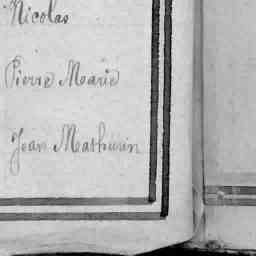 Nicolas
Pierre Marie
Jean Mathurin